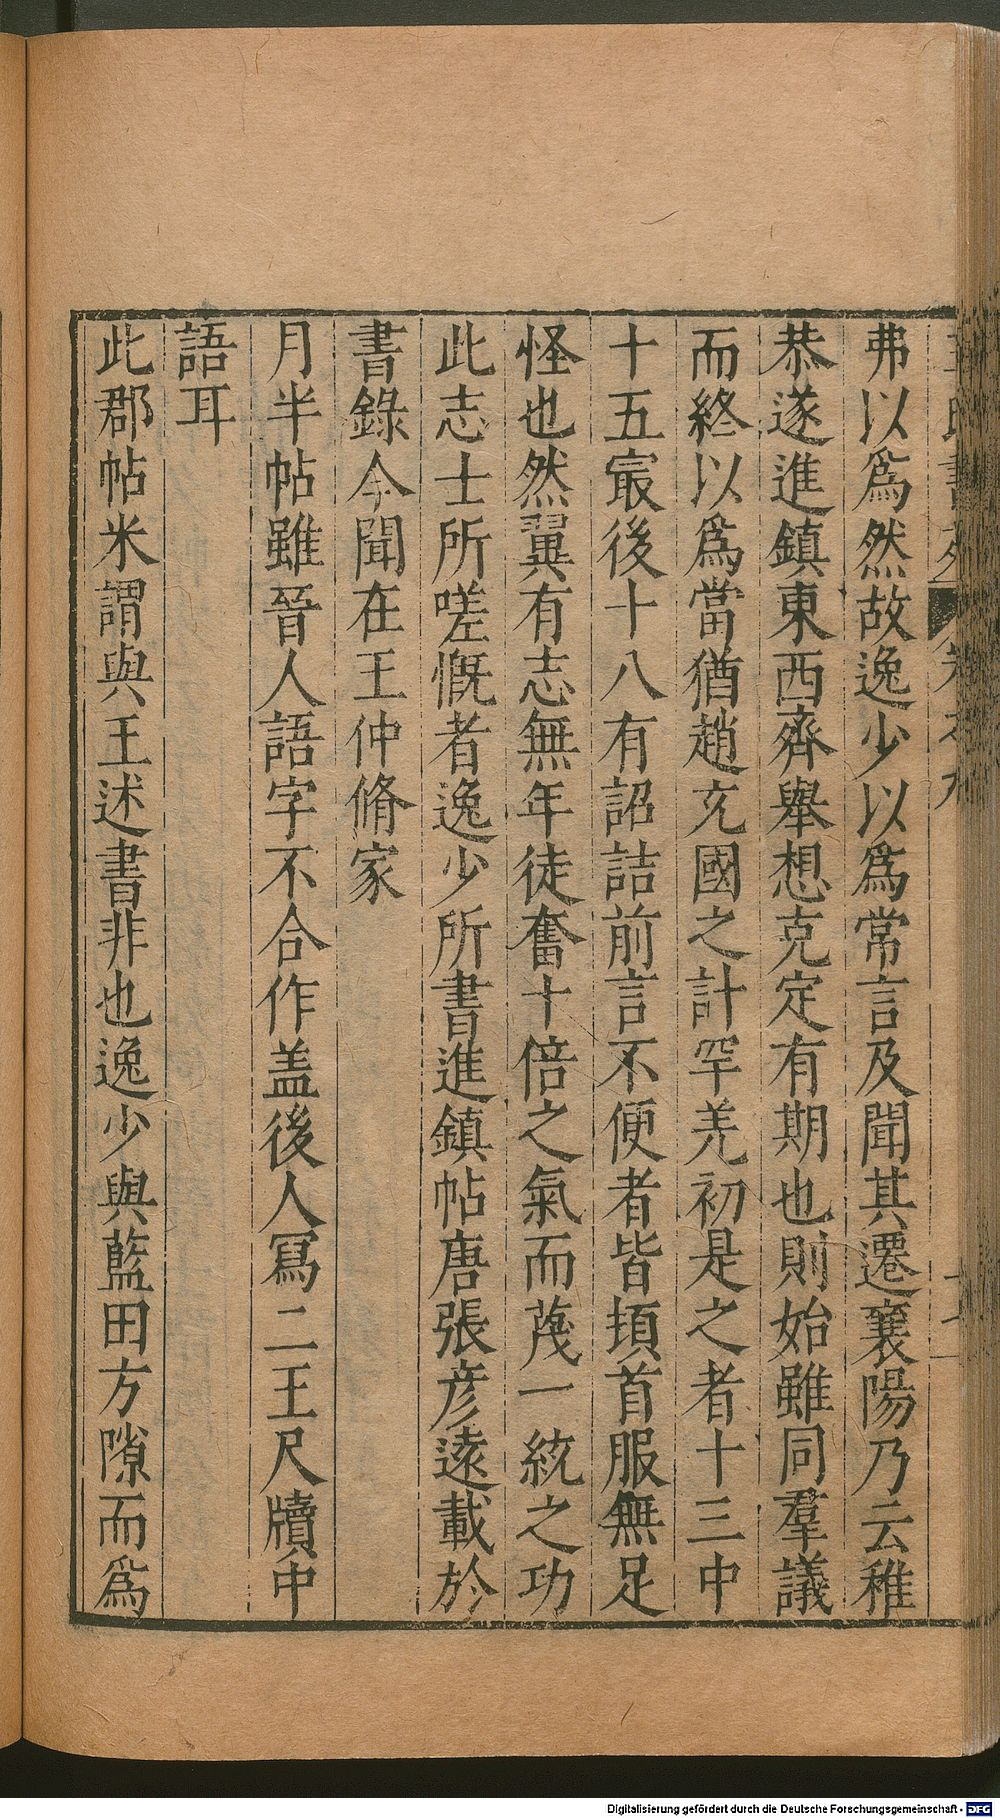 弗以爲然故逸少以爲常言及聞其遷襄陽乃云稚
恭遂進鎮東西齊舉想克定有期也則始雖同羣議
而終以爲當猶趙充國之計罕羌初是之者十三中
十五㝡後十八有詔詰前言不便者皆頓首服無足
怪也然翼有志無年徒奮十倍之氣而蔑一統之功
此志士所嗟慨者逸少所書進鎮帖唐張彦遠載於
書錄今聞在王仲脩家
月半帖雖晉人語字不合作盖後人寫二王尺牘中
語耳
此郡帖米謂與王述書非也逸少與藍田方隙而爲
Digitalisierung gefördert durch die Deutsche Forschungsgemeinschaft - DFG